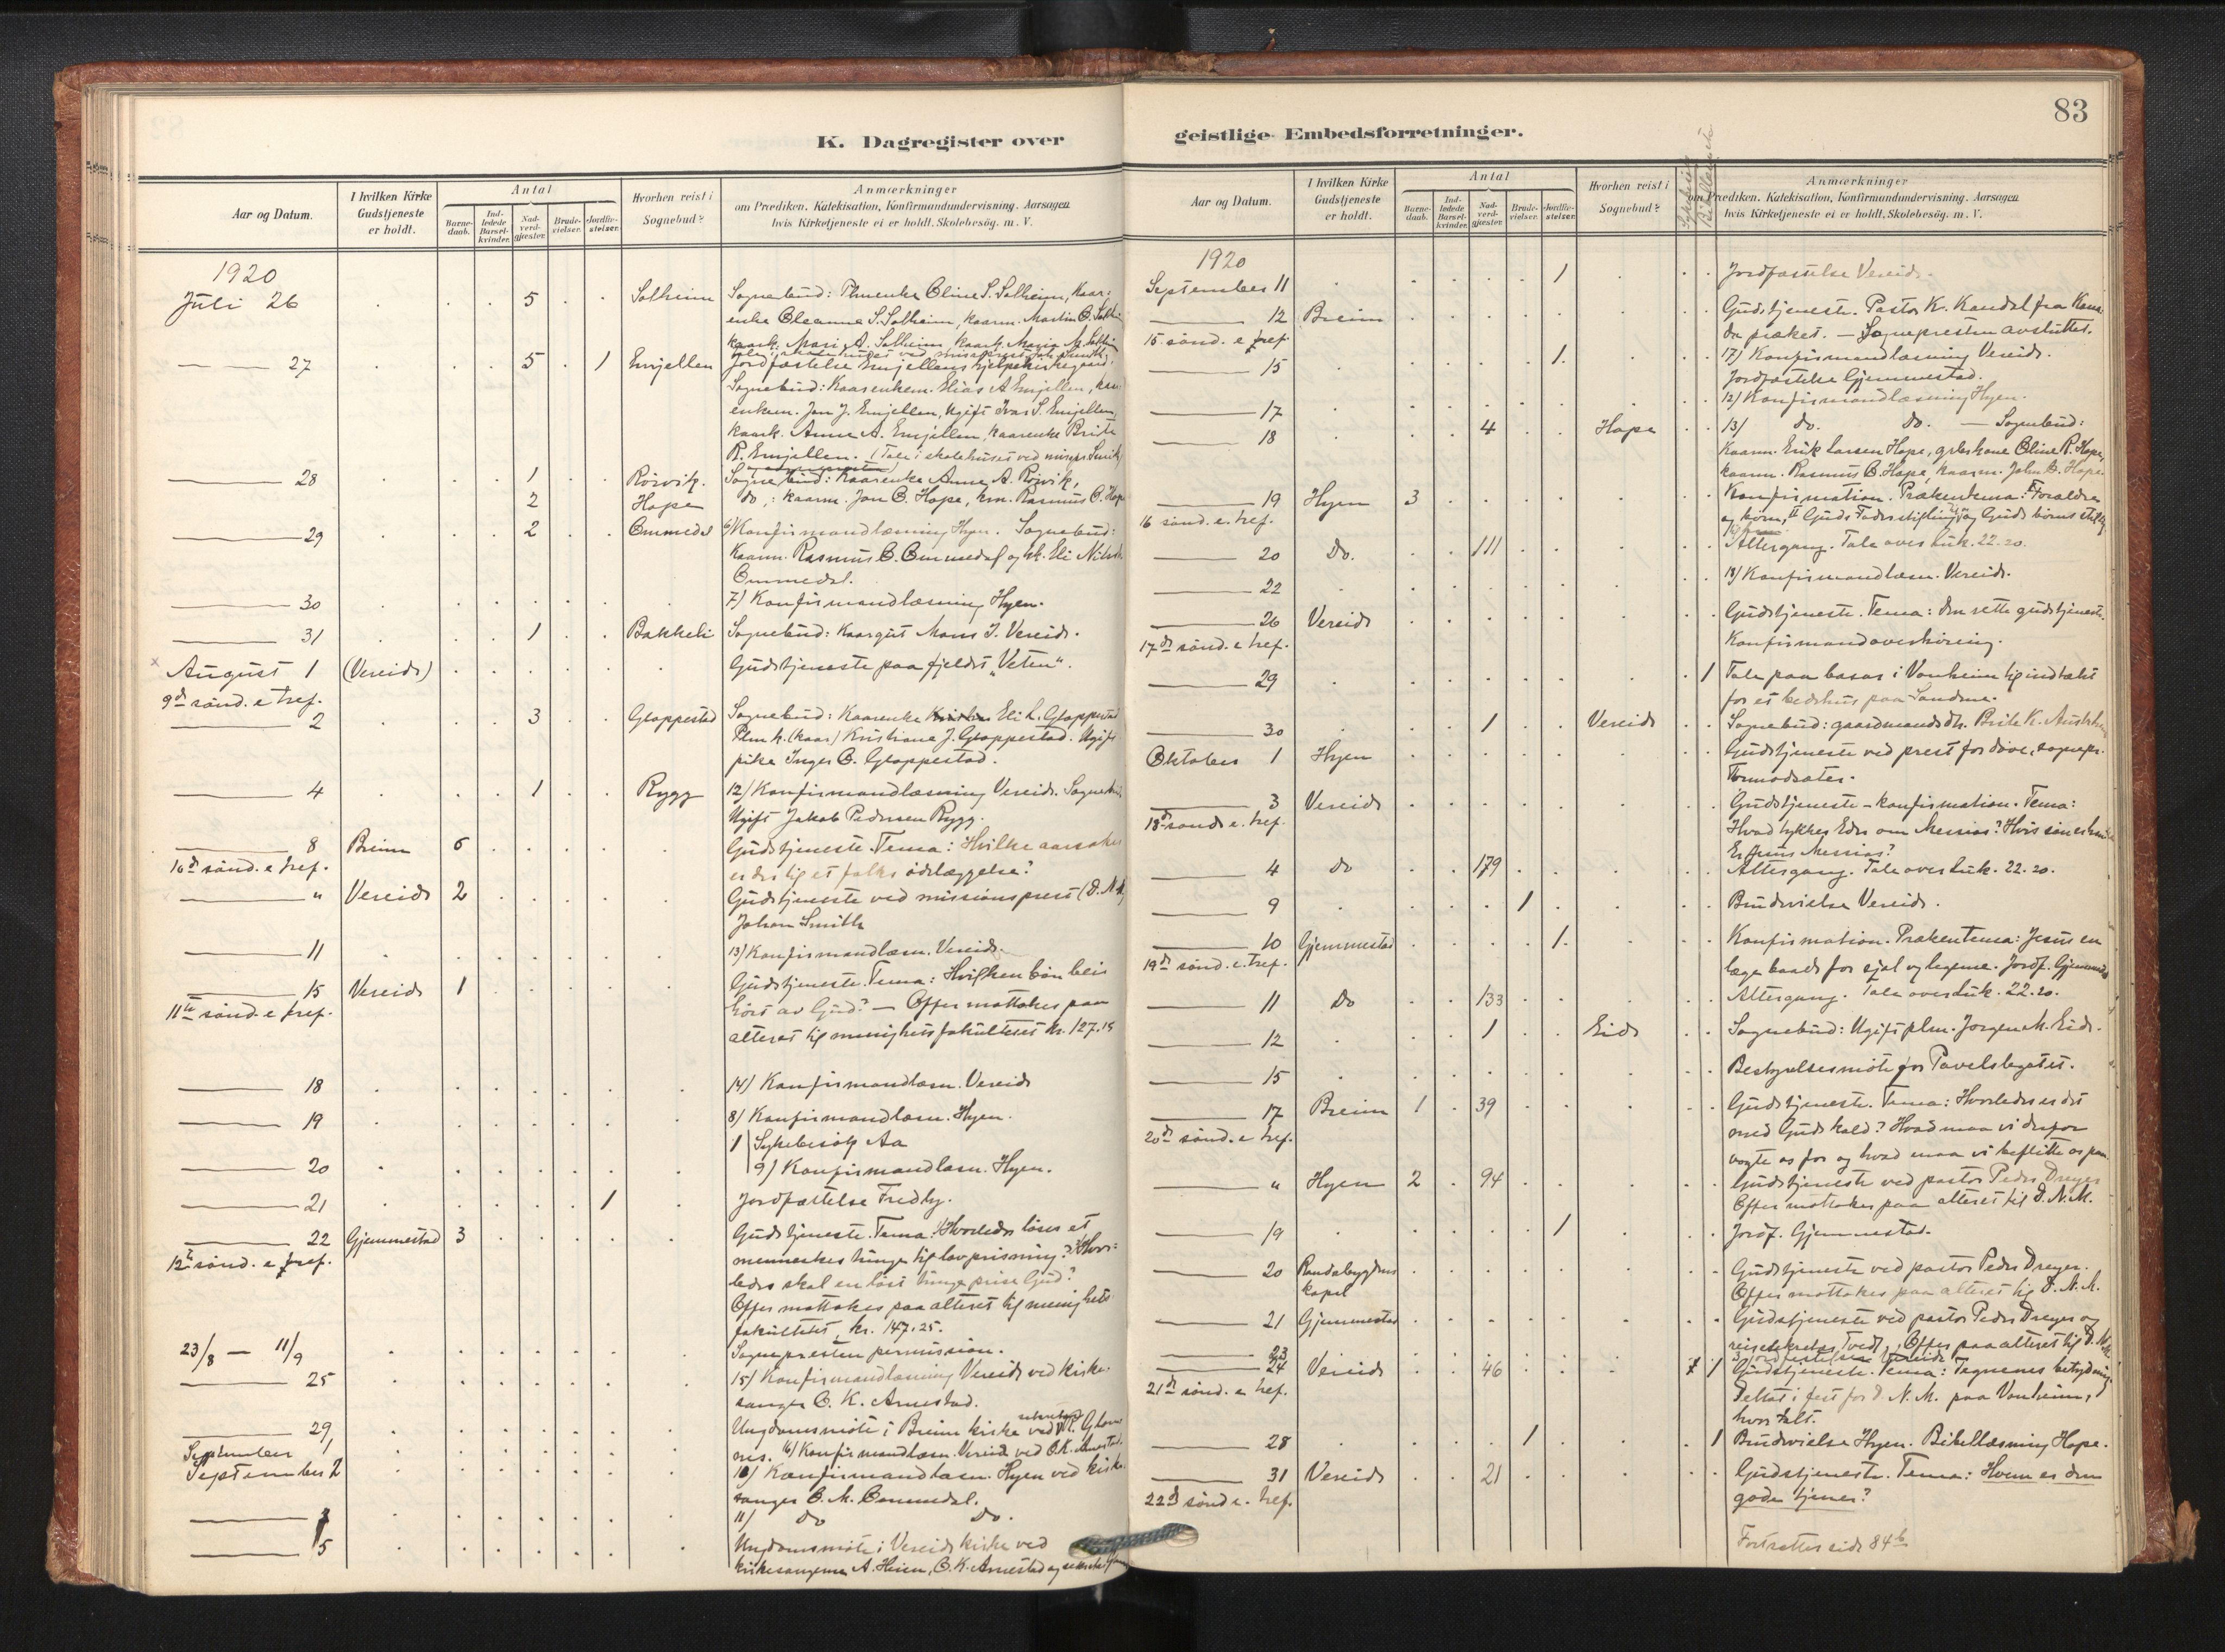 K. Dagregister over
Aar og Datum.
I hvilken Kirke Gudstjeneste er holdt.
Antal
Barne-daab.
Ind-ledede Barsel-kvinder.
Nad-verd-gjester.
Brude-vielser.
Jordfæ-stelser.
Hvorhen reist i Sognebud?
Anmærkninger
om Prædiken. Katekisation, Konfirmandundervisning. Aarsagen
hvis Kirketjeneste ei er holdt. Skolebesög. m. V.
1920
Juli 26 5 Solheim Sognebud: Oline S. Solheim, Kaar-
enke Oleanna S. Solheim, kaarm. Martin O. Solheim
kaark. Mari A. Solheim, kaark. Maria M. Solheim
27 5 1 Emjellen Jordfæstelse Emjellens hjelpekirkegaard.
Sognebud: Kaarenkem. Elias A. Emjellen, kaar
enkem. Jon J. Emjellen, Ugift Ivar S. Emjellen,
kaark. Anne A. Emjellen, kaarenke Brite
R. Emjellen. (Tale i skolehuset ved
28 1 Rörvik. Sognebud: Kaarenke Anne A. Rörvik,
2 Hope do, : kaarm. Jon O. Hope, km. Rasmus O. Hope
29 2 Ommedal 6/ Konfirmandlæsning Hyen. Sognebud:
Kaarm. Rasmus O. Ommedal og k. Eli Nilsd.
Ommedal.
30 7/ Konfirmandlæsning Hyen.
31 1 Bakkeli Sognebud: Kaargut Mons J. Vereide.
August 1 (Vereide) Gudstjeneste paa fjeldet "Veten".
9de sönd. e. tref.
2 3 Gloppestad Sognebud: Kaarenke Eli L. Gloppestad
Plm k. (kaar) Kristiane J. Gloppestad. Ugift
pike Inger O. Gloppestad.
4 1 Rygg 12/ Konfirmandlæsning Vereide. Sognebud
Ugift Jakob Pedersen Rygg.
8 Breim 6 Gudstjeneste. Tema: Hvilke aarsaker
10de sönd. e. tref. er der til et folks ödelæggelse?
" Vereide 2 Gudstjeneste ved missionsprest (D.N.M.)
Johan Smith
11 13) Konfirmandlæsn. Vereide.
15 Vereide 1 Gudstjeneste. Tema: Hvilken bön blir
11te sönd. e. tref. hört av Gud? — Offer mottokes paa
alteret til menighetsfakultetet kr. 127.15
18 14/ Konfirmandlæsn. Vereide
19 8/ Konfirmandlæsn. Hyen.
1 Sykebesök Aa
20 9/ Konfirmandlæsn. Hyen.
21 1 Jordfæstelse Fredly.
22 Gjemmestad 3 Gudstjeneste. Tema: 1/ Hvorledes löses et
12te sönd. e. tref. menneskes tunge til lovprisning? 2/ Hvor-
ledes skal en löst tunge prise Gud?
Offer mottokes paa alteret til menighets
fakultetet, kr. 147.25.
23/8 — 11/9 Sognepresten permission.
25 15/ Konfirmandlæsning Vereide ved kirke-
sanger O. K. Arnestad.
29 Ungdomsmöte i Breim kirke ved
September 1 16/ Konfirmandlæsn. Vereide ved O.K. Arnestad.
September 2 10/ Konfirmandlæsn. Hyen ved kirke
sanger O. M. Ommedal.
3 11/ do do.
5 Ungdomsmöte i Vereide kirke ved
kirkesangerne A. Heien, O. K. Arnestad og
83
geistlige Embedsforretninger.
Aar og Datum.
I hvilken Kirke Gudstjeneste er holdt.
Antal
Barne-daab.
Ind-ledede Barsel-kvinder.
Nad-verd-gjester.
Brude-vielser.
Jordfæ-stelser.
Hvorhen reist i Sognebud?
Anmærkninger
om Prædiken. Katekisation, Konfirmandundervisning. Aarsagen
hvis Kirketjeneste ei er holdt. Skolebesög. m. V.
1920
September 11 1 Jordfæstelse Vereide.
12 Breim Gudstjeneste. Pastor K. Kandal fra
15. sönd. e. tref. præket. — Sognepresten avsluttet.
17/ Konfirmandlæsning Vereide.
15 1 Jordfæstelse Gjemmestad.
17 12/ Konfirmandlæsning Hyen.
18 4 Hope 13/ do. do. — Sognebud:
Kaarm. Erik Larsen Hope, Oline R. Hope,
kaarm. Rasmus O. Hope, kaarm. John O. Hope.
19 Hyen 3 Konfirmation. Prækentema: I Forældre
16 sönd. e. tref. og börn, II Guds
20 Do. 111 Altergang. Tale over Luk. 22.20.
22 18/ Konfirmandlæsn. Vereide.
26 Vereide Gudstjeneste. Tema: Den rette gudstjeneste.
17de sönd. e. tref. Konfirmandoverhöring.
29 1 Tale paa basar i Vonheim til indtækt
for et bedehus paa Sandane.
30 1 Vereide Sognebud: gaardmandsdtr. Brite K.
Oktober 1 Hyen Gudstjeneste ved prest for döve, sognepr.
Tormodsæter.
3 Vereide Gudstjeneste – konfirmation. Tema:
18de sönd. e. tref. Hvad tykkes Eder om Messias? Hvis sön er han?
Er Jesus Messias?
4 Do 179 Altergang. Tale over Luk. 22.20.
9 1 Brudevielse Vereide.
10 Gjemmestad 1 Konfirmation. Prækentema: Jesus en
19de sönd. e. tref. læge baade for sjæl og legeme. Jordf. Gjemmestad
11 Do 133 Altergang. Tale over Luk. 22.20.
12 1 Eide Sognebud: Ugift plm. Jörgen M. Eide.
15 Bestyrelsesmöte for Pavelslegatet.
17 Breim 1 39 Gudstjeneste. Tema: Hvorledes er det
20de sönd. e. tref. med Guds kald? Hvad maa vi derfor
vogte os for og hvad maa vi beflitte os paa.
" Hyen 2 94 Gudstjeneste ved pastor Peder Dreyer
Offer mottokes paa alteret til D.N.M.
19 1 Jordf. Gjemmestad.
20 Randabygdens kapel Gudstjeneste ved pastor Peder Dreyer.
Offer mottokes paa alteret til D.N.M.
21 Gjemmestad Gudstjeneste ved pastor Peder Dreyer og
reisesekretær Tvedt. Offer paa alteret til D.N.M.
23
24 Vereide 46 7 1 Gudstjeneste. Tema: Tegnenes betydning.
21de sönd. e. tref. Deltat i fest for D.N.M. paa Vonheim,
hvor talt.
28 1 1 Brudevielse Hyen. Bibellæsning Hope.
31 Vereide 21 Gudstjeneste. Tema: Hvem er den
22de sönd. e. tref. gode tjener?
Fortsættes side 84b